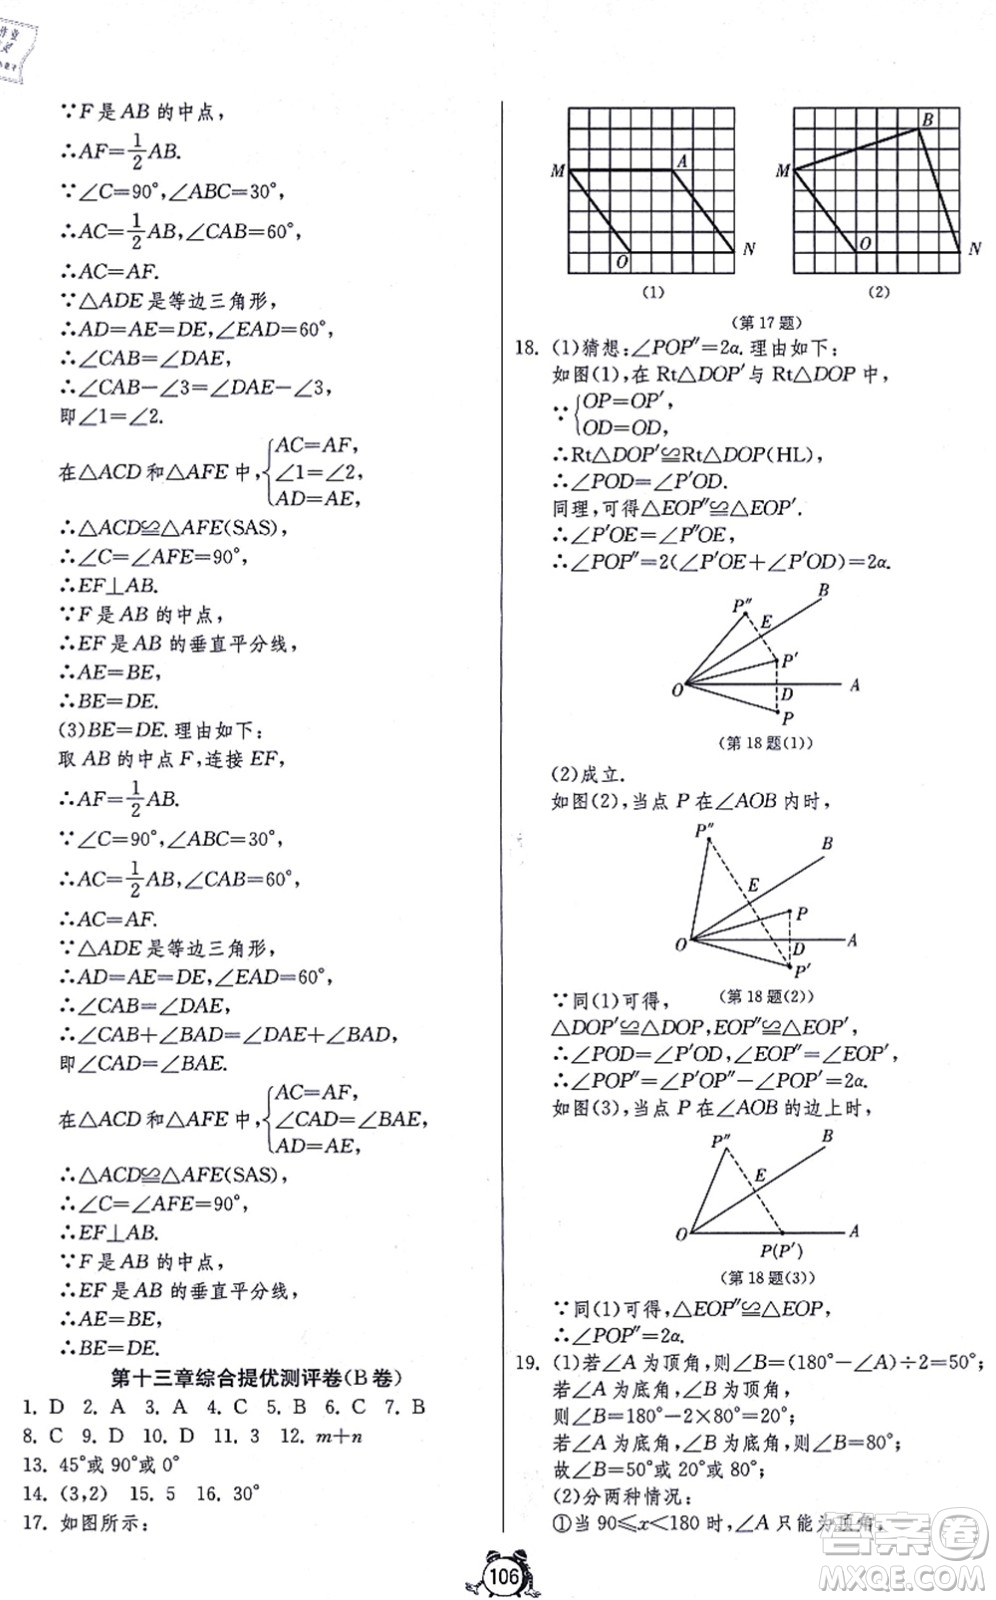 ∵F是AB的中点，
∴AF=1/2AB.
∵∠C=90°,∠ABC=30°,
∴AC=1/2AB,∠CAB=60°,
∴AC=AF.
∵△ADE是等边三角形，
∴AD=AE=DE,∠EAD=60°,
∴∠CAB=∠DAE,
∴∠CAB-∠3=∠DAE-∠3,
即∠1=∠2.
在△ACD和△AFE中,{AC=AF,
∠1=∠2,
AD=AE,
∴△ACD≌△AFE(SAS),
∴∠C=∠AFE=90°,
∴EF⊥AB.
∵F是AB的中点，
∴EF是AB的垂直平分线，
∴AE=BE,
∴BE=DE.
(3)BE=DE.理由如下：
取AB的中点F,连接EF,
∴AF=1/2AB.
∵∠C=90°,∠ABC=30°,
∴AC=1/2AB,∠CAB=60°,
∴AC=AF.
∵△ADE是等边三角形，
∴AD=AE=DE,∠EAD=60°,
∴∠CAB=∠DAE,
∴∠CAB+∠BAD=∠DAE+∠BAD,
即∠CAD=∠BAE.
在△ACD和△AFE中,{AC=AF,
∠CAD=∠BAE,
AD=AE,
∴△ACD≌△AFE(SAS),
∴∠C=∠AFE=90°,
∴EF⊥AB.
∵F是AB的中点，
∴EF是AB的垂直平分线，
∴AE=BE,
∴BE=DE.
第十三章综合提优测评卷(B卷)
1. D 2. A 3. A 4. C 5. B 6. C 7. B
8. C 9. D 10. D 11. 3 12. m+n
13. 45°或90°或0°
14. (3,2) 15. 5 16. 30°
17. 如图所示：
M A O N
(1)
M B O N
(2)
(第17题)
18. (1)猜想：∠POP″=2α.理由如下：
如图(1),在Rt△DOP′与Rt△DOP中，
∵{OP=OP′,
OD=OD,
∴Rt△DOP′≌Rt△DOP(HL),
∴∠POD=∠P′OD.
同理,可得△EOP″≌△EOP′.
∴∠P′OE=∠P″OE,
∴∠POP″=2(∠P′OE+∠P′OD)=2α.
P″ E B P′ O D A P
(第18题(1))
(2)成立.
如图(2),当点P在∠AOB内时，
P″ B E P O D A P′
(第18题(2))
∵同(1)可得，
△DOP′≌△DOP,EOP″≌△EOP′,
∴∠POD=∠P′OD,∠EOP″=∠EOP′,
∴∠POP″=∠P′OP″-∠P′OP=2α.
如图(3),当点P在∠AOB的边上时，
P″ B E O A P(P′)
(第18题(3))
∵同(1)可得,△EOP″≌△EOP,
∴∠POP″=2α.
19. (1)若∠A为顶角,则∠B=(180°-∠A)÷2=50°;
若∠A为底角,∠B为顶角，
则∠B=180°-2×80°=20°;
若∠A为底角,∠B为底角,则∠B=80°;
故∠B=50°或20°或80°;
(2)分两种情况：
①当90≤x<180时,∠A只能为顶角，
106
答案卷
MXQE.COM